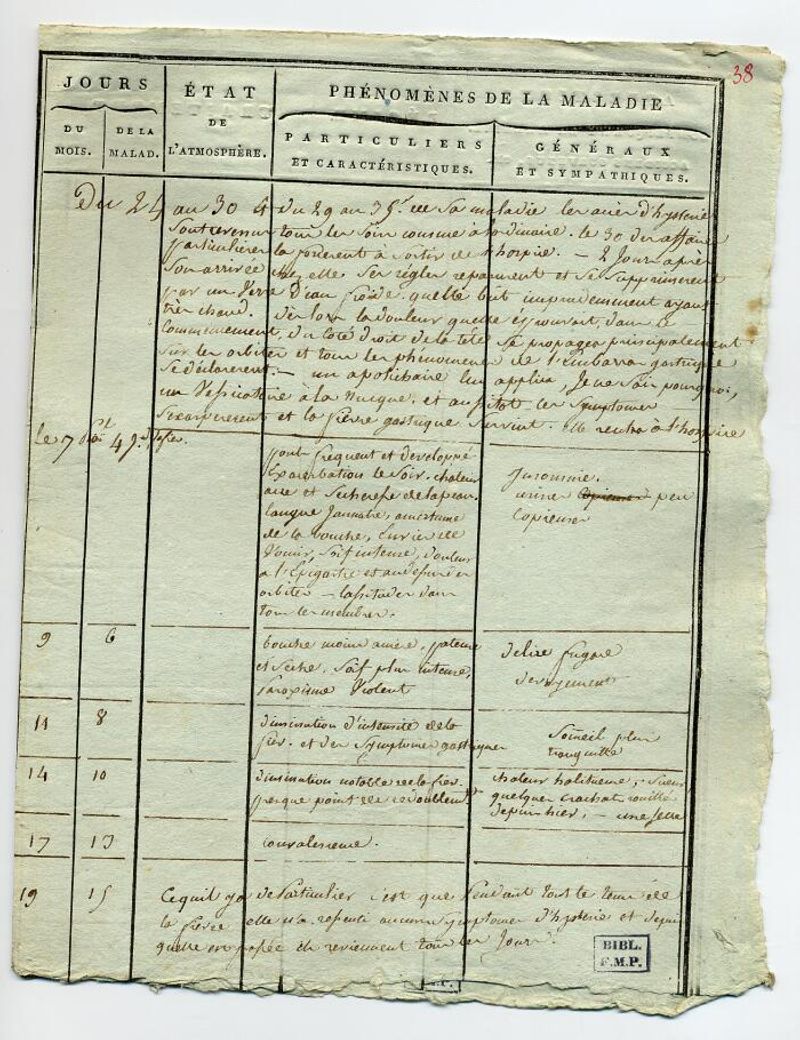 38
JOURS
ÉTAT
DE
L'ATMOSPHÈRE.
PHÉNOMÈNES DE LA MALADIE
DU
MOIS.
DE LA
MALAD.
PARTICULIERS
ET CARACTÉRISTIQUES.
GÉNÉRAUX
ET SYMPATHIQUES.
Du 24 au 30 & du 29 au 35e. de sa maladie les accès d'hysterie
sont revenus tous les soirs comme à l'ordinaire. le 30 des affaires
particulieres la forcerent à sortir de l'hospice. - 2 jours après
son arrivée chez elle ses règles reparurent et se supprimerent
par un verre d'eau froide quelle but imprudemment ayant
très chaud. dès lors la douleur quelle éprouvait dans le
commencement, du coté droit de la tête se propagea principalement
sur les orbites et tous les phénomenes de l'embarras gastrique
se déclarerent. - un apothicaire lui appliqua, je ne sais pourquoi,
un vesicatoire à la nuque. et aussitot les symptomes
s'exaspererent et la fievre gastrique survint. elle rentra à l'hospice
le 7
pouls frequent et developpé
Exacerbation le soir. chaleur
acre et secheresse de la peau.
langue jaunatre, amertume
de la bouche, Envie de
vomir, soif intense, douleur
à l'Epigastre et au dessus des
orbites - lassitudes dans
tous les membres.
Insomnie.
urines copieuses peu
copieuses
9 6
bouche moins amère. pateuse
et seche. soif plus intense,
Paroxisme violent
delire fugace
devoyement
11 8
diminution d'intensité de la
fiev. et des symptomes gastriques
Someil plus
tranquille
14 10
diminution notable de la fiev.
presque point de redoublemt.
chaleur halitueuse, sueur
quelques crachats rouillés
depuis hier, - une selle
17 13
convalescence.
19 15 Ce quil y a de particulier c'est que Pendant tout le tems de
la fievre elle n'a ressenti aucuns symptomes d'hysterie et depuis
reviennent tous les jours.
BIBL.
F.M.P.